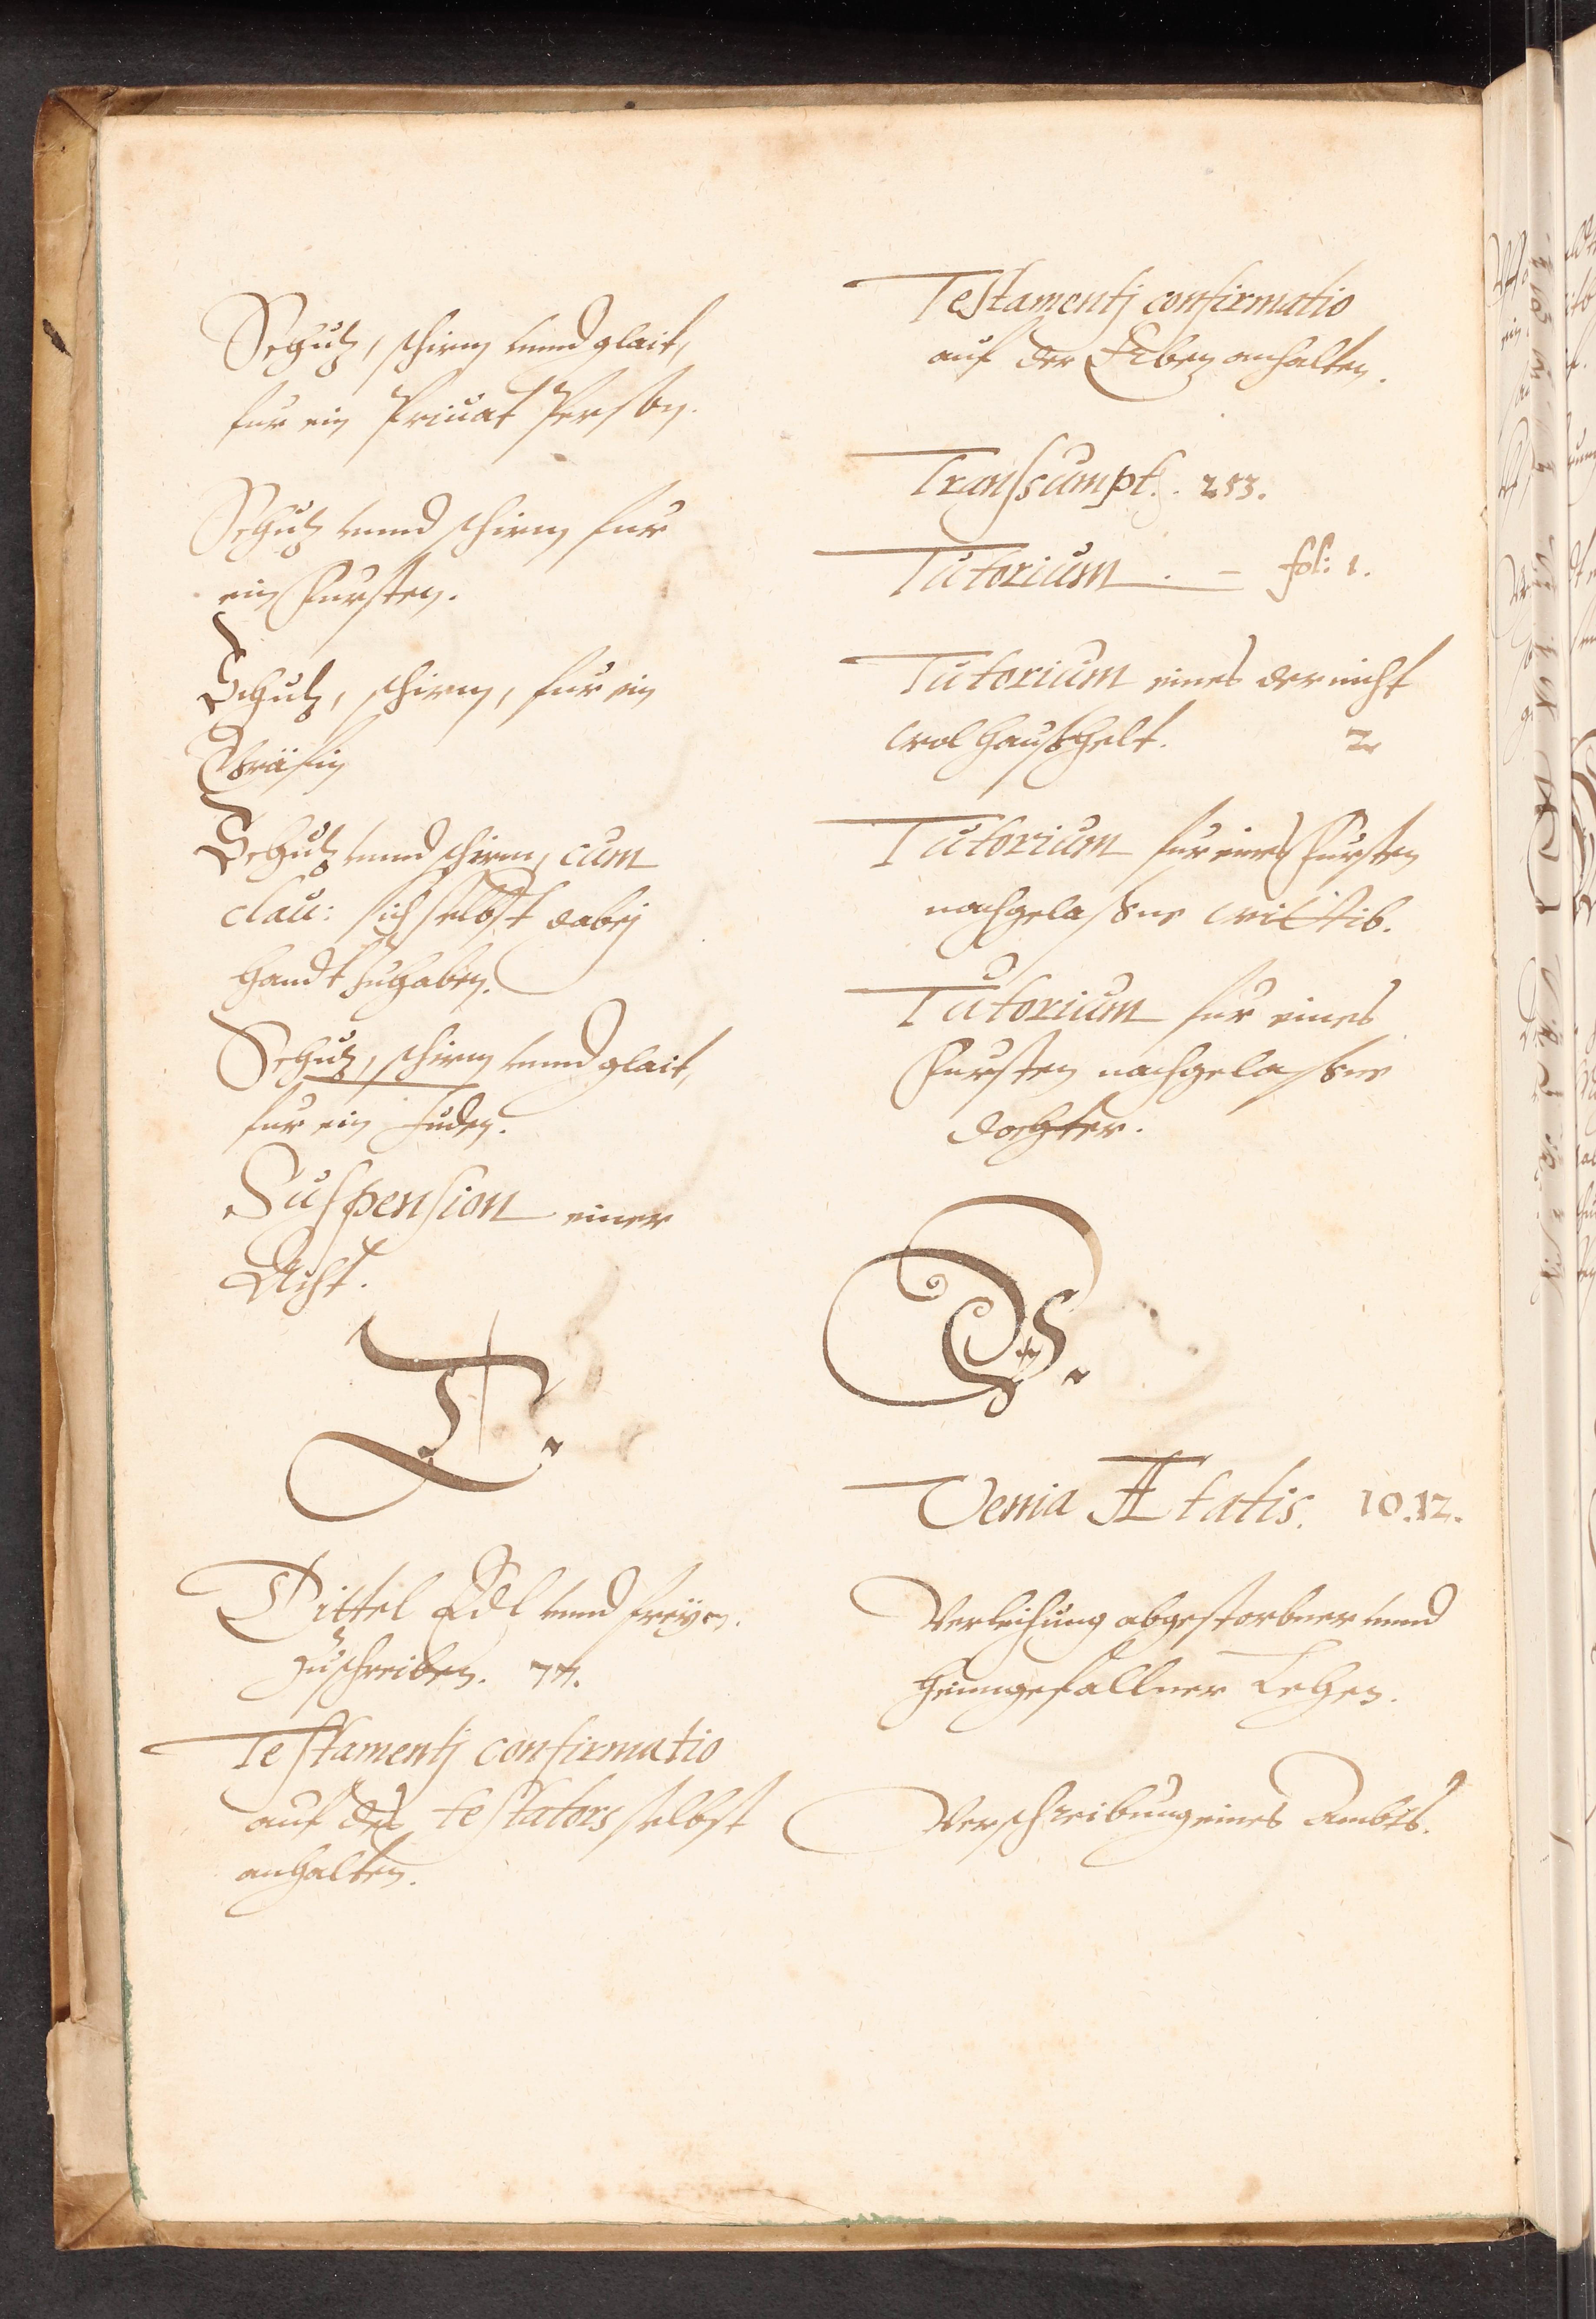 Schutz, schirm unnd glait,
fur ein Priuat Person.
Schutz unnd schirm fur
ein Fursten.
Schutz, schirm, fur ein
Gräfin
Schutz unnd schirm, cum
clau: sich selbst dabej
handt zuhaben.
Schutz, schirm unnd glait,
fur ein Juden.
Suspension einer
Acht.
T.
Tittel Edl unnd freyen.
zuschreiben. 77.
Testamentj confirmatio
auf des testators selbst
anhalten.
Testamentj confirmatio
auf der Erben anhalten.
Transsumpt. 253.
Tutorium. – fol: 1.
Tutorium eines der nicht
wol haushelt. 2
Tutorium fur eines Fursten
nachgelassne wittib.
Tutorium fur eines
Fursten nachgelassne
dochter.
V.
Venia Ætatis. 10.12.
Verleihung abgestorbner unnd
heimgefallner Lehen.
Verschreibung eines Ambts.